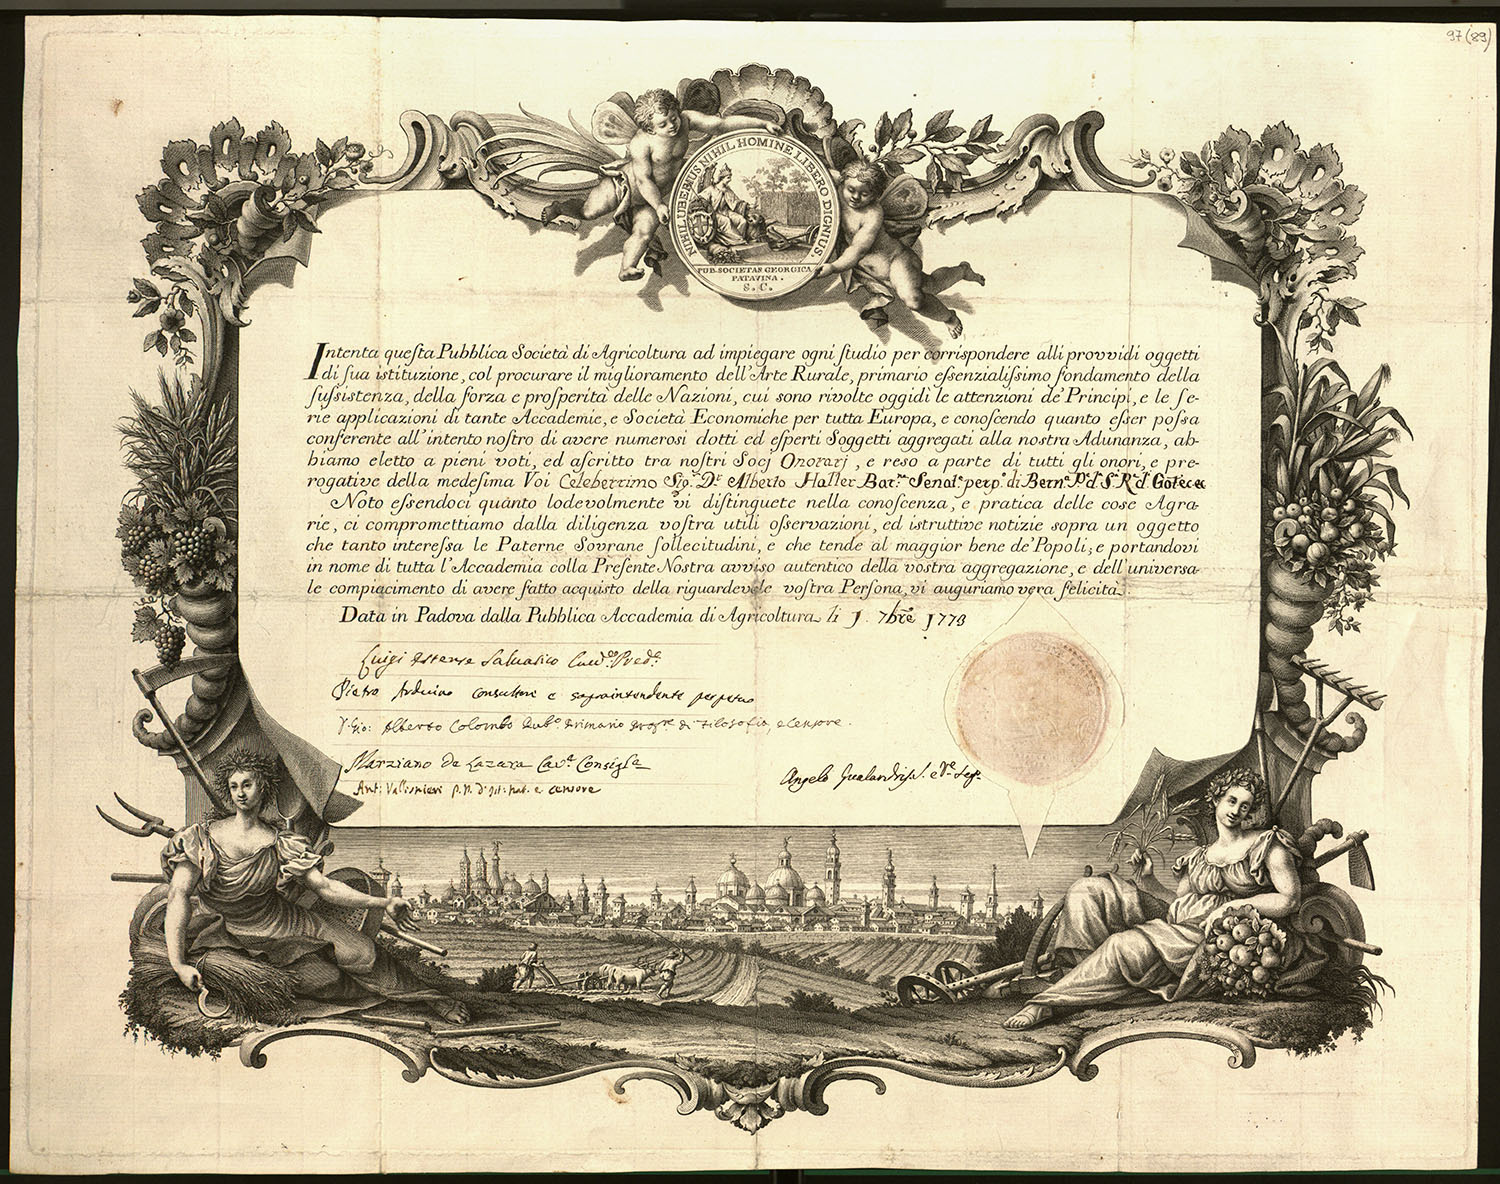 97 (89)
NIHIL UBERIUS NIHIL HOMINE LIBERO DIGNIUS.
PUB. SOCIETAS GEORGICA
PATAVINA.
S. C.
Intenta queſta Pubblica Società di Agricoltura ad impiegare ogni ſtudio per corriſpondere alli provvidi oggetti
di ſua istituzione, col procurare il miglioramento dell'Arte Rurale, primario eſsenzialiſsimo fondamento della
ſuſsistenza, della forza e proſperità delle Nazioni, cui sono rivolte oggidì le attenzioni de' Principi, e le ſe-
rie applicazioni di tante Accademie, e Società Economiche per tutta Europa, e conoſcendo quanto eſser poſsa
conferente all'intento noſtro di avere numerosi dotti ed eſperti Soggetti aggregati alla nostra Adunanza, ab-
biamo eletto a pieni voti, ed aſcritto tra noſtri Socj Onorarj, e reso a parte di tutti gli onori, e pre-
rogative della medesima Voi Celeberrimo Sig.r D.r Alberto Haller Bar.ne Senat.e perp.o di Bern.a P. d. S. R. d. Gottega
Noto eſsendoci quanto lodevolmente vi diſtinguete nella conoſcenza, e pratica delle cose Agra-
rie, ci compromettiamo dalla diligenza voſtra utili oſservazioni, ed istruttive notizie sopra un oggetto
che tanto intereſsa le Paterne Sovrane ſollecitudini, e che tende al maggior bene de' Popoli; e portandovi
in nome di tutta l'Accademia colla Preſente Nostra avviso autentico della vostra aggregazione, e dell'universa-
le compiacimento di avere fatto acquisto della riguardevole voſtra Perſona, vi auguriamo vera felicità.
Data in Padova dalla Pubblica Accademia di Agricoltura li 1. 7bre 1773
Luigi Estense Selvatico Pred.e
Pietro Arduino Consultore e sopraintendente perpetuo
Gio: Alberto Colombo Pub.o Primario Prof.re di Filosofia, e Censore.
Marziano de Lazara Cav.r Consigl.e
Ant: Vallisnieri P. P. e censore
Angelo Gualandris Seg.